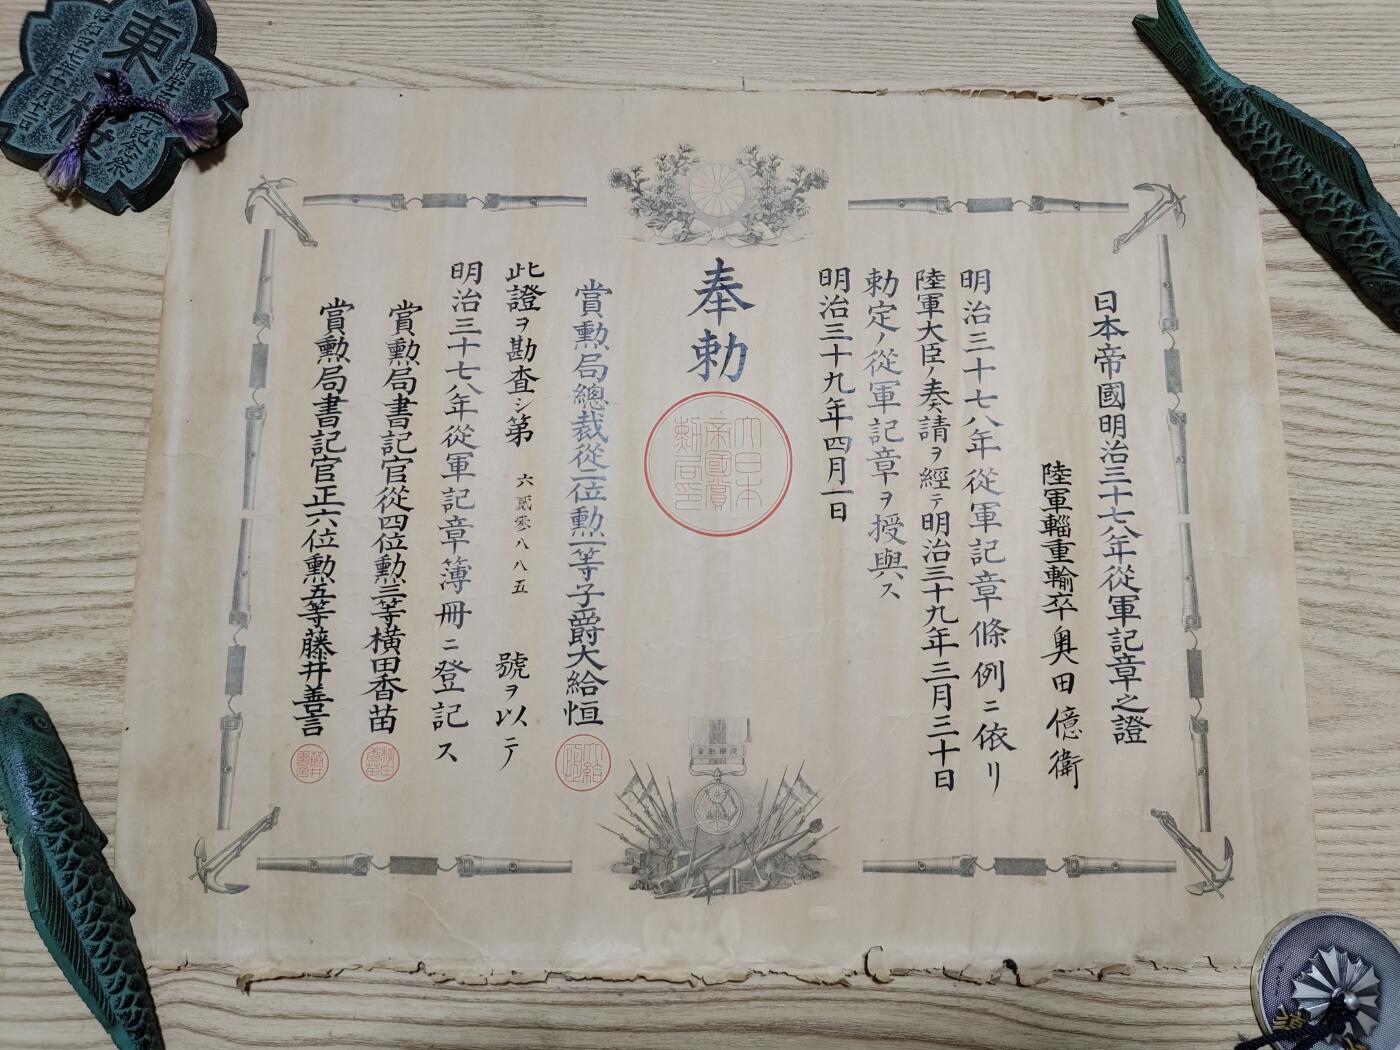 日本帝國明治三十七八年從軍記章之證
陸軍輜重輸卒奥田億衞
明治三十七八年從軍記章條例ニ依リ
陸軍大臣ノ奏請ヲ經テ明治三十九年三月三十日
勅定ノ從軍記章ヲ授與ス
明治三十九年四月一日
奉勅
大日本
帝國賞
勲局印
賞勲局總裁從二位勲一等子爵大給恒
此證ヲ勘査シ第六貳參八八五號ヲ以テ
明治三十七八年從軍記章簿冊ニ登記ス
賞勲局書記官從四位勲三等横田香苗
賞勲局書記官正六位勲五等藤井善言
從軍記章
東